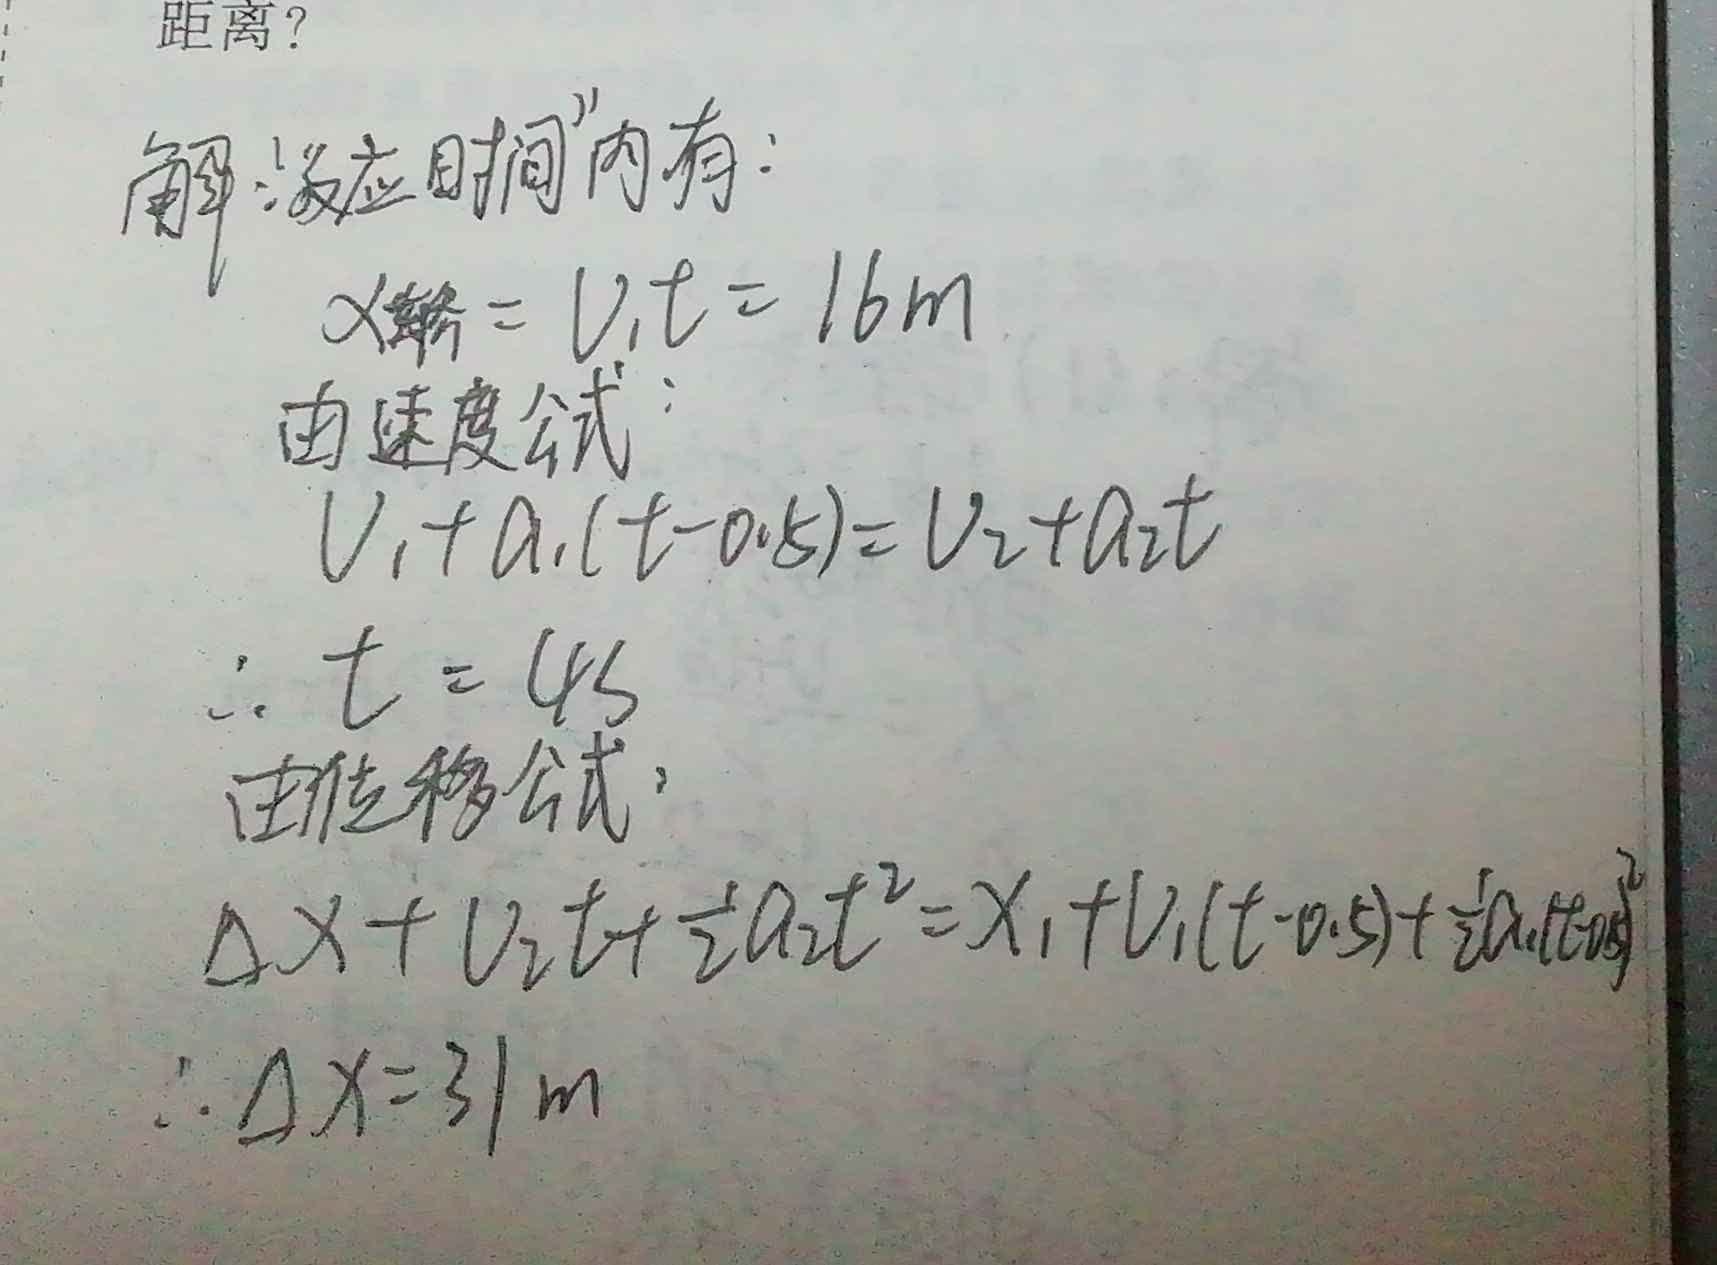 距离?
解:"反应时间"内有:
x轿=V₁t=16m
由速度公式:
V₁+a₁(t-0.5)=V₂+a₂t
∴ t=4s
由位移公式:
Δx+V₂t+½a₂t²=x₁+V₁(t-0.5)+½a₁(t-0.5)²
∴Δx=31m